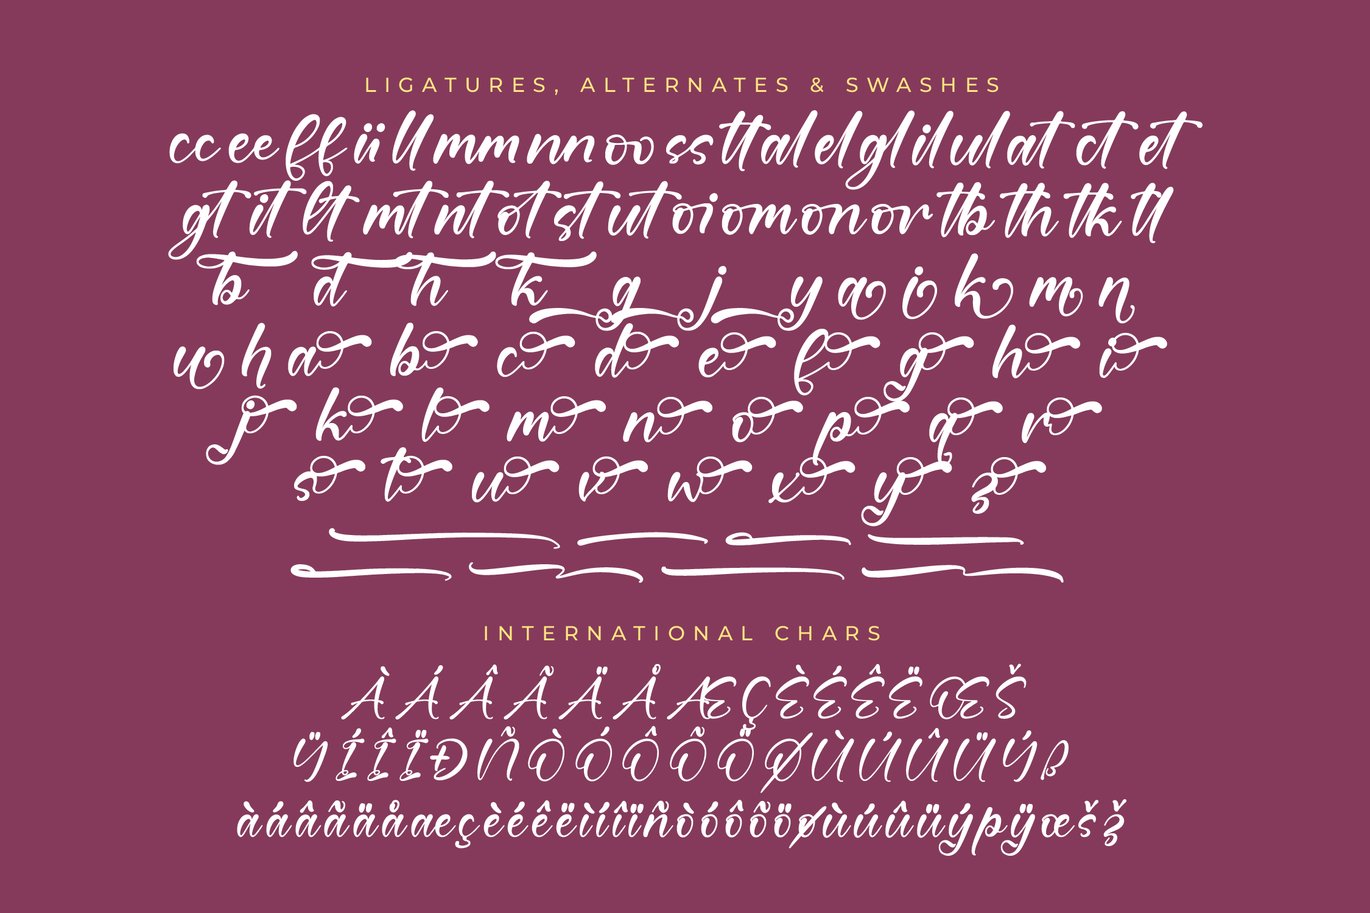 LIGATURES, ALTERNATES & SWASHES
cc ee ff ii ll mm nn oo ss tt al el gl il ul at ct et
gt it lt mt nt ot st ut oi om on or tb th tk tl
b d h k g j y a i k m n
u h a b c d e f g h i
j k l m n o p q r
s t u v w x y z
INTERNATIONAL CHARS
À Á Â Ã Ä Å Æ Ç È É Ê Ë Œ Š
Ÿ Í Î Ï Ð Ñ Ò Ó Ô Õ Ö Ø Ù Ú Û Ü Ý ß
à á â ã ä å æ ç è é ê ë ì í î ï ñ ò ó ô õ ö ø ù ú û ü ý þ ÿ œ š ž